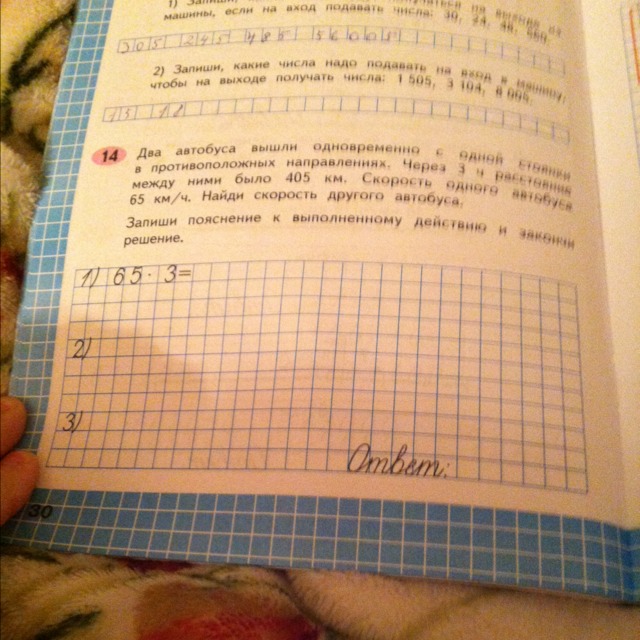 1) Запиши,
машины, если на вход подавать числа: 30, 24, 48, 560.
305 245 485 5605
2) Запиши, какие числа надо подавать на вход в машину,
чтобы на выходе получать числа: 1 505, 3 104, 8 005.
14 Два автобуса вышли одновременно с одной стоянки
в противоположных направлениях. Через 3 ч расстояние
между ними было 405 км. Скорость одного автобуса
65 км/ч. Найди скорость другого автобуса.
Запиши пояснение к выполненному действию и закончи
решение.
1) 65 · 3=
2)
3)
Ответ:
30